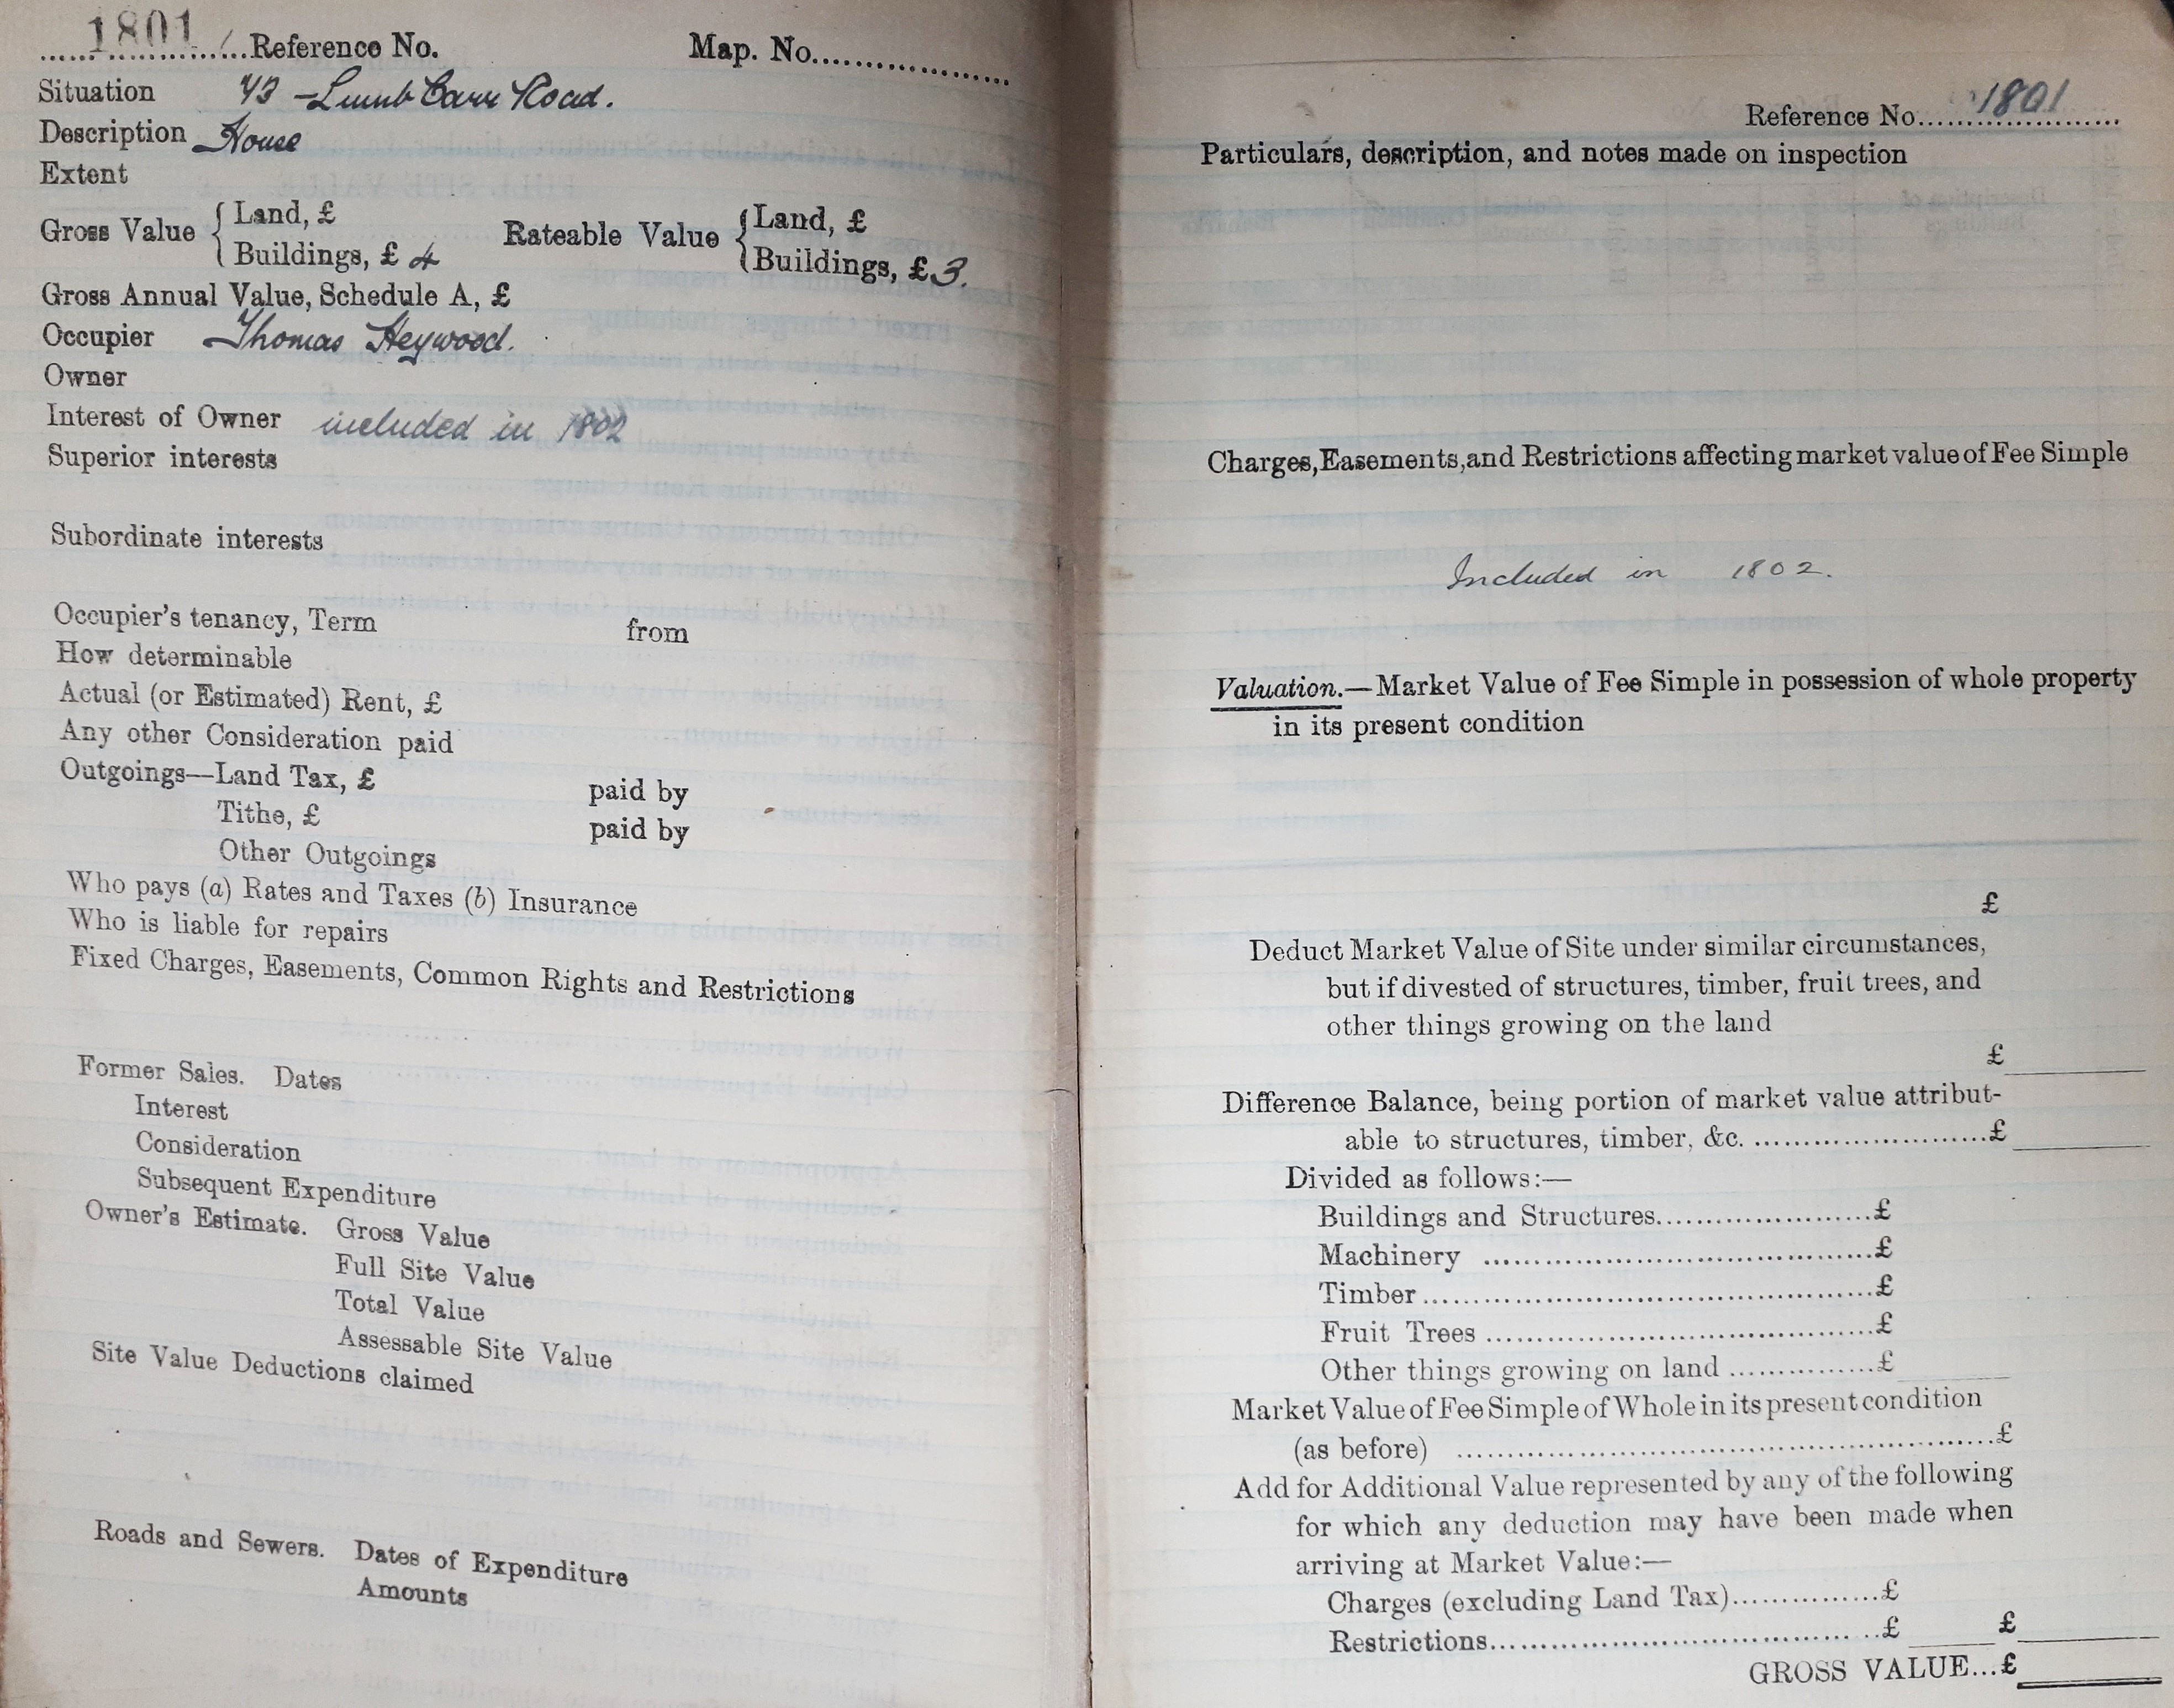 1801 Reference No. Map. No.
Situation 43 Lumb Carr Road.
Description House
Extent
Gross Value { Land, £ Rateable Value { Land, £
Buildings, £ 4 Buildings, £ 3.
Gross Annual Value, Schedule A, £
Occupier Thomas Heywood.
Owner
Interest of Owner included in 1802
Superior interests
Subordinate interests
Occupier's tenancy, Term from
How determinable
Actual (or Estimated) Rent, £
Any other Consideration paid
Outgoings—Land Tax, £ paid by
Tithe, £ paid by
Other Outgoings
Who pays (a) Rates and Taxes (b) Insurance
Who is liable for repairs
Fixed Charges, Easements, Common Rights and Restrictions
Former Sales. Dates
Interest
Consideration
Subsequent Expenditure
Owner's Estimate. Gross Value
Full Site Value
Total Value
Assessable Site Value
Site Value Deductions claimed
Roads and Sewers. Dates of Expenditure
Amounts
Reference No. 1801
Particulars, description, and notes made on inspection
Charges, Easements, and Restrictions affecting market value of Fee Simple
Included in 1802.
Valuation.—Market Value of Fee Simple in possession of whole property
in its present condition
£
Deduct Market Value of Site under similar circumstances,
but if divested of structures, timber, fruit trees, and
other things growing on the land
£
Difference Balance, being portion of market value attribut-
able to structures, timber, &c. £
Divided as follows:—
Buildings and Structures £
Machinery £
Timber £
Fruit Trees £
Other things growing on land £
Market Value of Fee Simple of Whole in its present condition
(as before) £
Add for Additional Value represented by any of the following
for which any deduction may have been made when
arriving at Market Value:—
Charges (excluding Land Tax) £
Restrictions £ £
GROSS VALUE...£